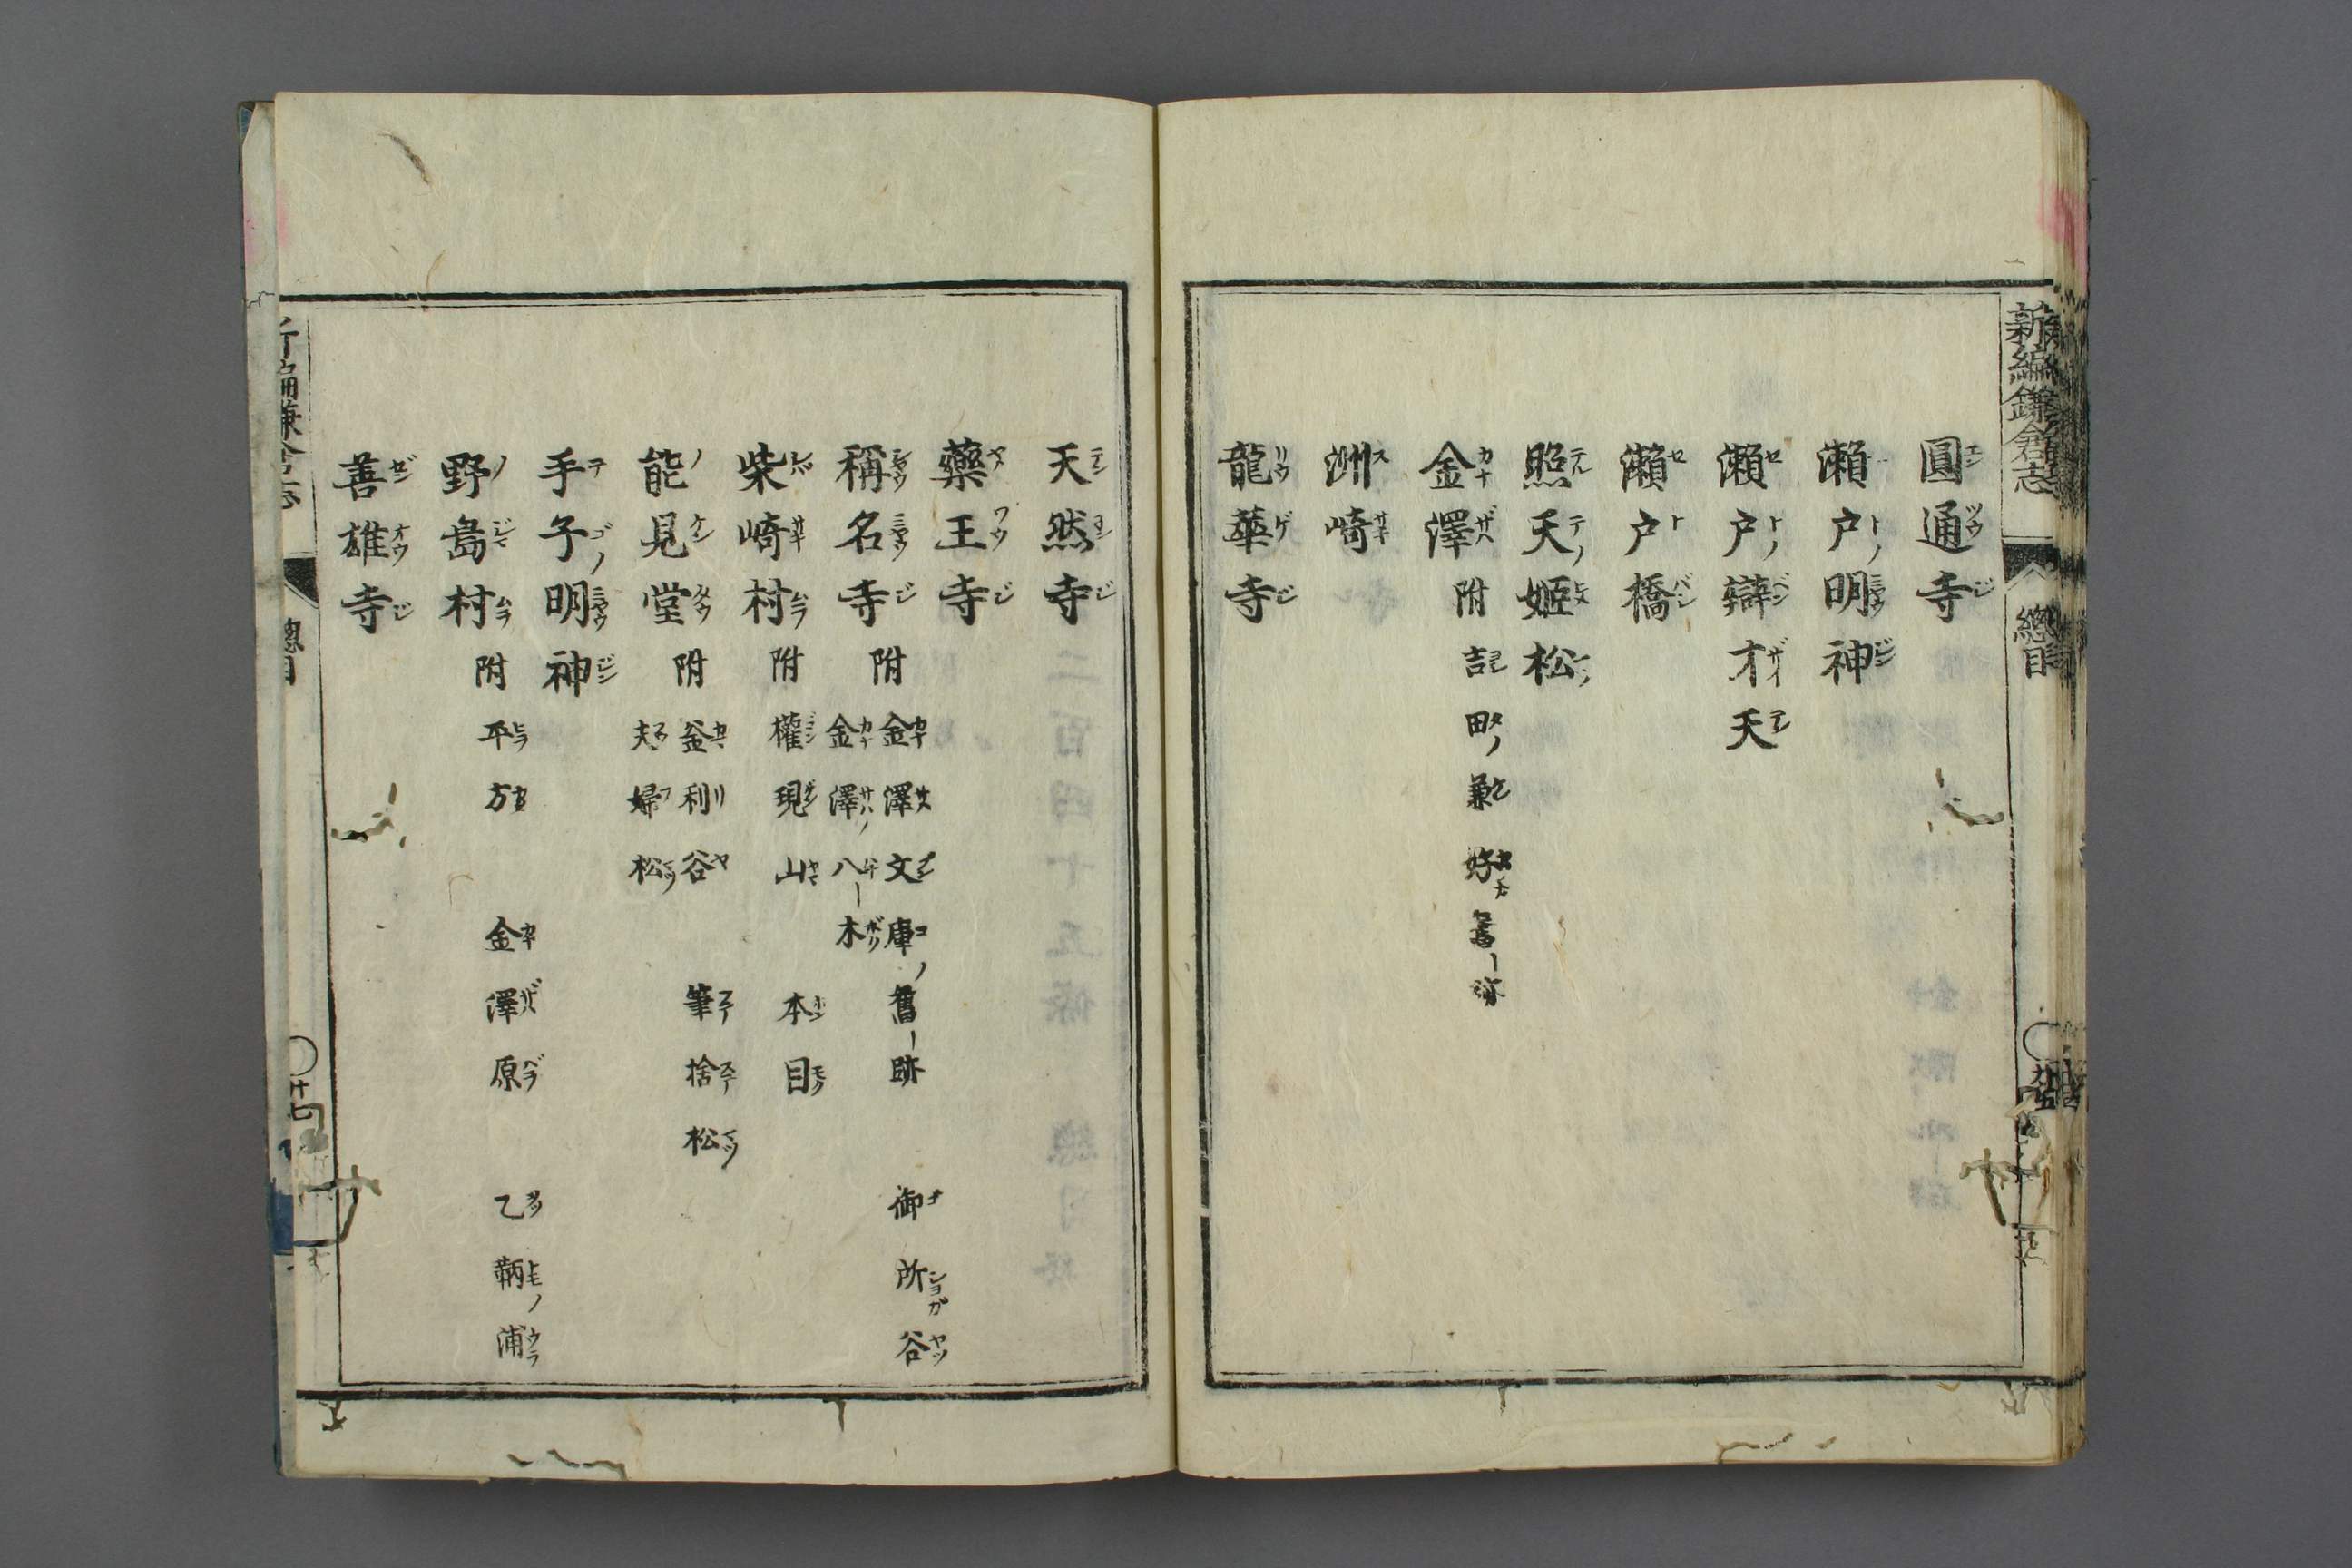 新編鎌倉志 總目
圓通寺
瀨戸明神
瀨戸辯才天
瀨戸橋
照天姬松
金澤 附 吉田兼好舊跡
洲崎
龍華寺
天然寺
藥王寺
稱名寺 附 金澤文庫舊跡 御所谷
金澤八木
柴崎村 附 權現山 本目
能見堂 附 釜利谷 筆捨松
夫婦松
手子明神
野島村 附 平方 金澤原 乙鞆浦
善雄寺
總目